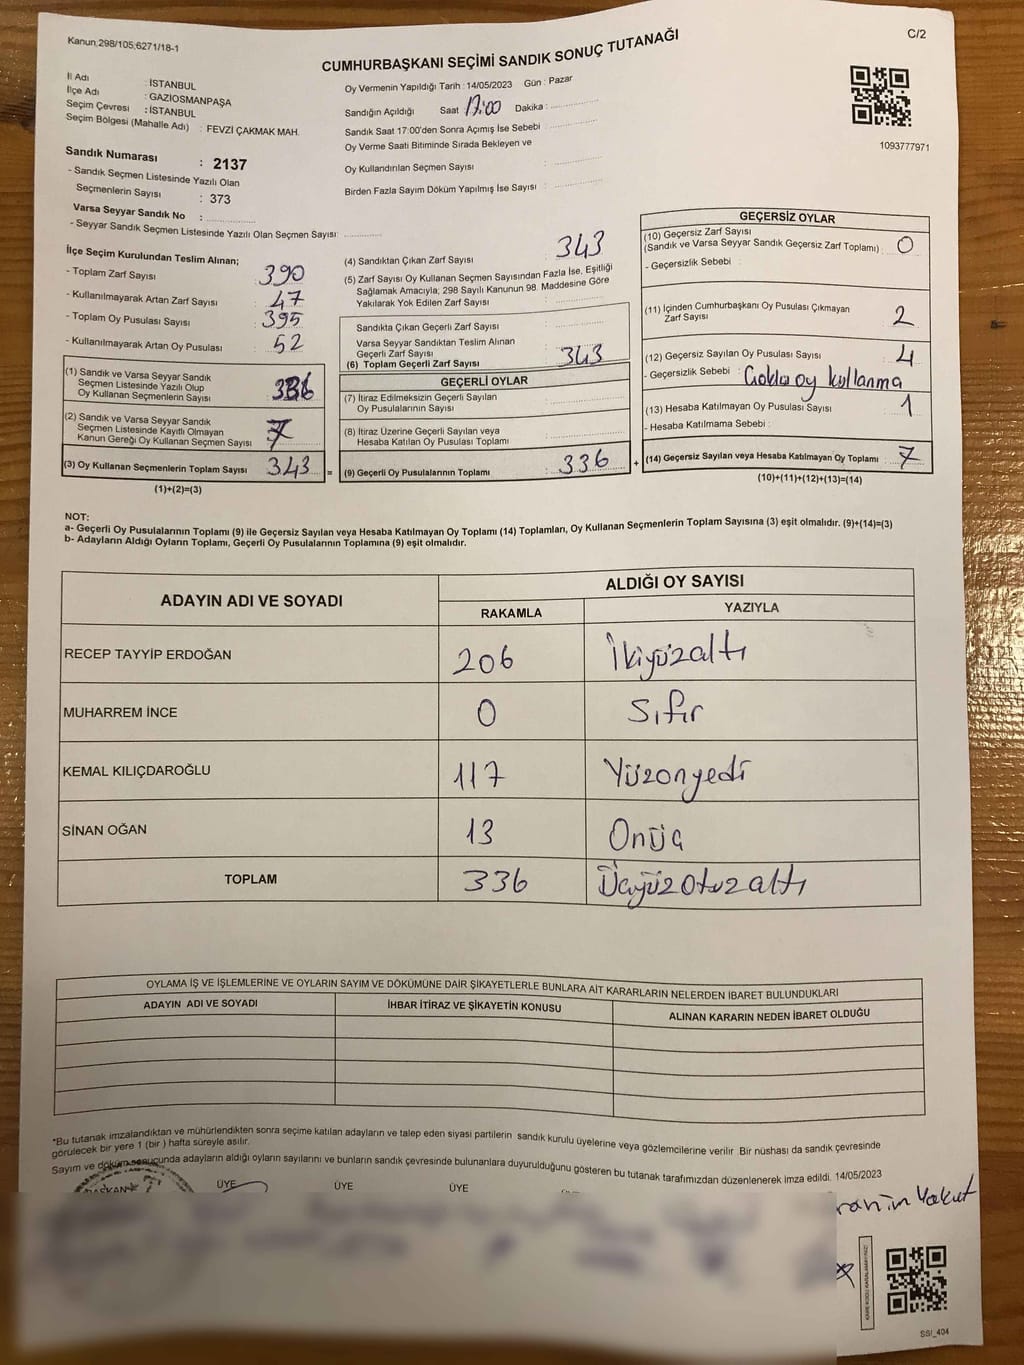 Kanun;298/105;6271/18-1
C/2
CUMHURBAŞKANI SEÇİMİ SANDIK SONUÇ TUTANAĞI
İl Adı : İSTANBUL
İlçe Adı : GAZİOSMANPAŞA
Seçim Çevresi : İSTANBUL
Seçim Bölgesi (Mahalle Adı) : FEVZİ ÇAKMAK MAH.
Oy Vermenin Yapıldığı Tarih : 14/05/2023 Gün : Pazar
Sandığın Açıldığı Saat 17:00 Dakika :
Sandık Saat 17:00'den Sonra Açımış İse Sebebi :
Oy Verme Saati Bitiminde Sırada Bekleyen ve
Oy Kullandırılan Seçmen Sayısı :
Birden Fazla Sayım Döküm Yapılmış İse Sayısı :
1093777971
Sandık Numarası : 2137
- Sandık Seçmen Listesinde Yazılı Olan
Seçmenlerin Sayısı : 373
Varsa Seyyar Sandık No :
- Seyyar Sandık Seçmen Listesinde Yazılı Olan Seçmen Sayısı:
İlçe Seçim Kurulundan Teslim Alınan;
- Toplam Zarf Sayısı : 390
- Kullanılmayarak Artan Zarf Sayısı : 47
- Toplam Oy Pusulası Sayısı : 395
- Kullanılmayarak Artan Oy Pusulası : 52
(1) Sandık ve Varsa Seyyar Sandık
Seçmen Listesinde Yazılı Olup
Oy Kullanan Seçmenlerin Sayısı : 336
(2) Sandık ve Varsa Seyyar Sandık
Seçmen Listesinde Kayıtlı Olmayan
Kanun Gereği Oy Kullanan Seçmen Sayısı : 7
(3) Oy Kullanan Seçmenlerin Toplam Sayısı : 343 =
(1)+(2)=(3)
(4) Sandıktan Çıkan Zarf Sayısı : 343
(5) Zarf Sayısı Oy Kullanan Seçmen Sayısından Fazla İse, Eşitliği
Sağlamak Amacıyla; 298 Sayılı Kanunun 98. Maddesine Göre
Yakılarak Yok Edilen Zarf Sayısı :
Sandıkta Çıkan Geçerli Zarf Sayısı :
Varsa Seyyar Sandıktan Teslim Alınan
Geçerli Zarf Sayısı :
(6) Toplam Geçerli Zarf Sayısı : 343
GEÇERLİ OYLAR
(7) İtiraz Edilmeksizin Geçerli Sayılan
Oy Pusulalarının Sayısı :
(8) İtiraz Üzerine Geçerli Sayılan veya
Hesaba Katılan Oy Pusulası Toplamı :
(9) Geçerli Oy Pusulalarının Toplamı : 336 +
GEÇERSİZ OYLAR
(10) Geçersiz Zarf Sayısı
(Sandık ve Varsa Seyyar Sandık Geçersiz Zarf Toplamı) : 0
- Geçersizlik Sebebi :
(11) İçinden Cumhurbaşkanı Oy Pusulası Çıkmayan
Zarf Sayısı : 2
(12) Geçersiz Sayılan Oy Pusulası Sayısı : 4
- Geçersizlik Sebebi : Çoklu oy kullanma
(13) Hesaba Katılmayan Oy Pusulası Sayısı : 1
- Hesaba Katılmama Sebebi :
(14) Geçersiz Sayılan veya Hesaba Katılmayan Oy Toplamı : 7
(10)+(11)+(12)+(13)=(14)
NOT:
a- Geçerli Oy Pusulalarının Toplamı (9) ile Geçersiz Sayılan veya Hesaba Katılmayan Oy Toplamı (14) Toplamları, Oy Kullanan Seçmenlerin Toplam Sayısına (3) eşit olmalıdır. (9)+(14)=(3)
b- Adayların Aldığı Oyların Toplamı, Geçerli Oy Pusulalarının Toplamına (9) eşit olmalıdır.
ADAYIN ADI VE SOYADI
ALDIĞI OY SAYISI
RAKAMLA YAZIYLA
RECEP TAYYİP ERDOĞAN 206 İkiyüzaltı
MUHARREM İNCE 0 Sıfır
KEMAL KILIÇDAROĞLU 117 Yüzonyedi
SİNAN OĞAN 13 Onüç
TOPLAM 336 Üçyüzotuzaltı
OYLAMA İŞ VE İŞLEMLERİNE VE OYLARIN SAYIM VE DÖKÜMÜNE DAİR ŞİKAYETLERLE BUNLARA AİT KARARLARIN NELERDEN İBARET BULUNDUKLARI
ADAYIN ADI VE SOYADI İHBAR İTİRAZ VE ŞİKAYETİN KONUSU ALINAN KARARIN NEDEN İBARET OLDUĞU
*Bu tutanak imzalandıktan ve mühürlendikten sonra seçime katılan adayların ve talep eden siyasi partilerin sandık kurulu üyelerine veya gözlemcilerine verilir. Bir nüshası da sandık çevresinde
görülecek bir yere 1 (bir ) hafta süreyle asılır.
Sayım ve döküm sonucunda adayların aldığı oyların sayılarını ve bunların sandık çevresinde bulunanlara duyurulduğunu gösteren bu tutanak tarafımızdan düzenlenerek imza edildi. 14/05/2023
BAŞKAN ÜYE ÜYE ÜYE
Yakut
SSİ_404